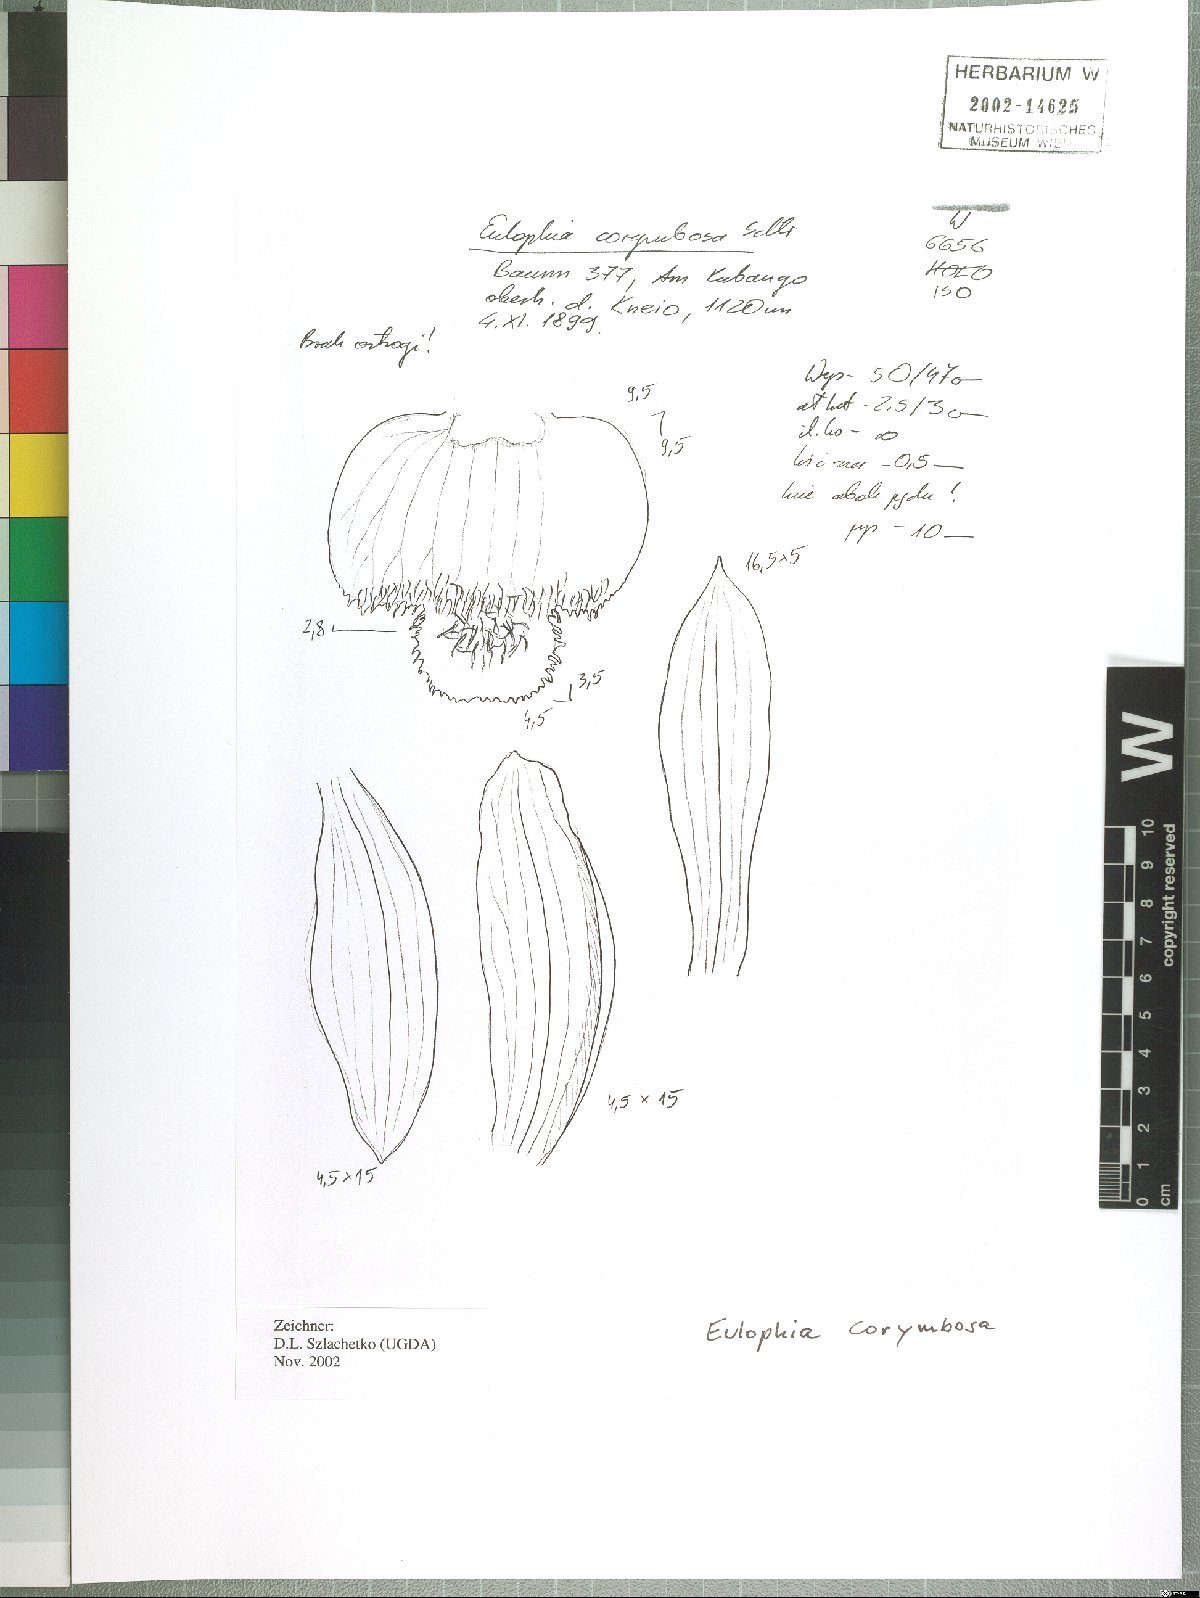 HERBARIUM W
2002-14625
NATURHISTORISCHES
MUSEUM WIEN
W
6656
HOLO
ISO
Eulophia corymbosa Schltr
Baum 377, Am Kubango
oberh. d. Kneio, 1120 m
4. XI. 1899.
Brak ostrogi!
- 50/47
- 2,5/3
- ∞
- 0,5 —
!
- 10 —
9,5
9,5
16,5x5
2,8
3,5
4,5
4,5 x 15
4,5x15
Zeichner:
D.L. Szlachetko (UGDA)
Nov. 2002
Eulophia corymbosa
W
0 1 2 3 4 5 6 7 8 9 10
cm
copyright reserved